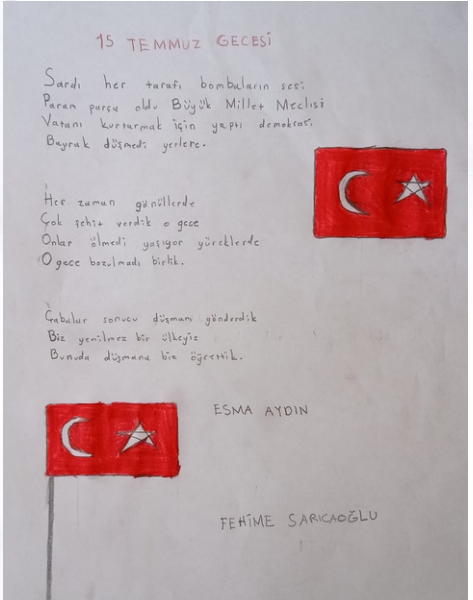 15 TEMMUZ GECESİ
Sardı her tarafı bombaların sesi
Param parça oldu Büyük Millet Meclisi
Vatanı kurtarmak için yaptı demokrasi
Bayrak düşmedi yerlere.
Her zaman gönüllerde
Çok şehit verdik o gece
Onlar ölmedi yaşıyor yüreklerde
O gece bozulmadı birlik.
Çabalar sonucu düşmanı gönderdik
Biz yenilmez bir ülkeyiz
Bunuda düşmana biz öğrettik.
ESMA AYDIN
FEHİME SARICAOĞLU